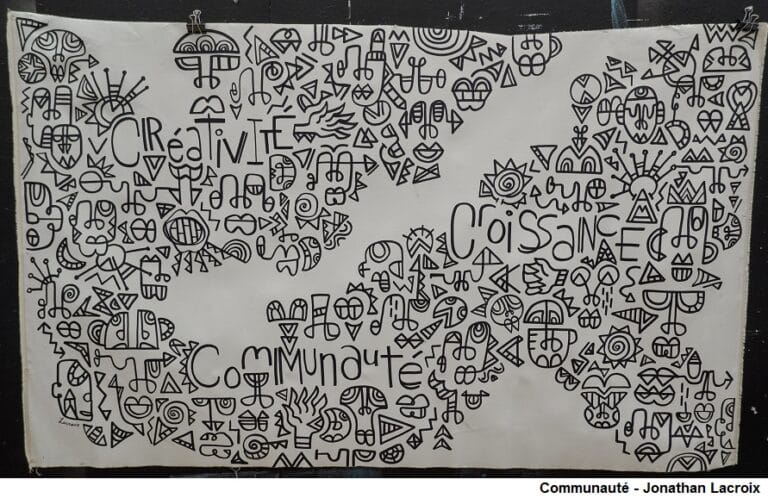 CRéativIté
CroissancE
Communauté
Lacroix
Communauté - Jonathan Lacroix